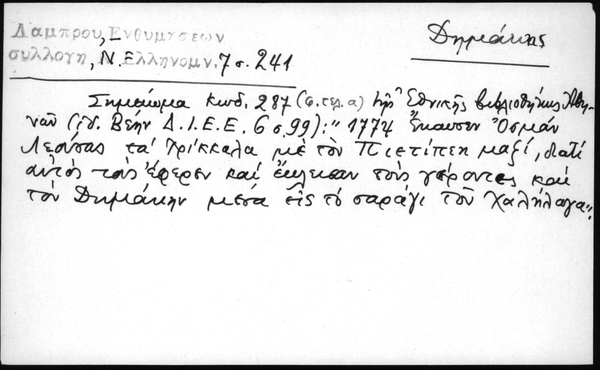 Λάμπρου, Ενθυμήσεων
συλλογή, Ν. Ελληνομν. 7 σ. 241
Δημάκης
Σημείωμα κωδ. 287 (σ. τελ. α) τῆς Ἐθνικῆς βιβλιοθήκης Ἀθη-
νῶν (ἰδ. Βέην Δ.Ι.Ε.Ε. 6 σ. 99): "1774 Ἔκαυσεν Ὀσμάν
τὰ Τρίκκαλα μὲ τὸν Πιετίπεη μαζί, διατί
αὐτὸς τοὺς ἔφερεν καὶ ἔκλεισαν τοὺς γέροντες καὶ
τὸν Δημάκην μέσα εἰς τὸ σαράγι τοῦ Χαλήλαγα".